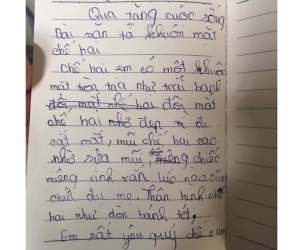 Quà tặng cuộc sống
Bài văn tả khuôn mặt
chế hai
Chế hai em có một khuôn
mặt tròn trịa như trái banh
đôi mắt chế hai đôi mắt
chế hai nhỏ đẹp vì đi
cắt mắt, mũi chế hai cao
nhờ sửa mũi, miệng chiếc
miệng xinh xắn lúc nào cũng
chửi đụ mẹ. Thân hình chế
hai như đòn bánh tét.
Em rất yêu quý chế em